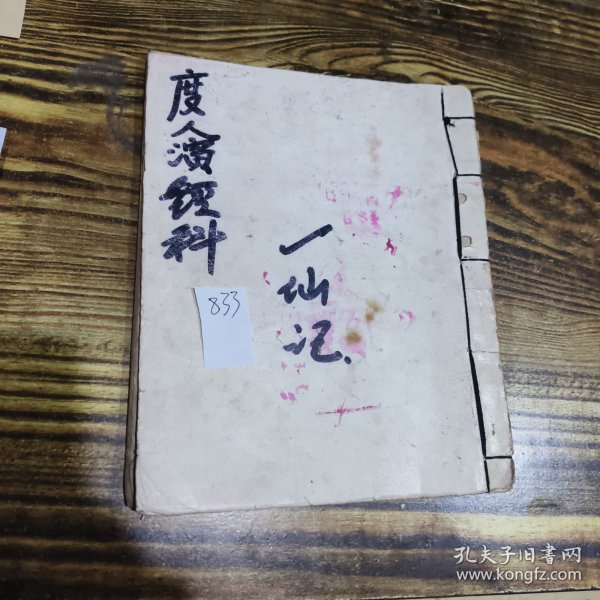 度人演经科
一仙记
833
孔夫子旧書网
www.kongfz.com